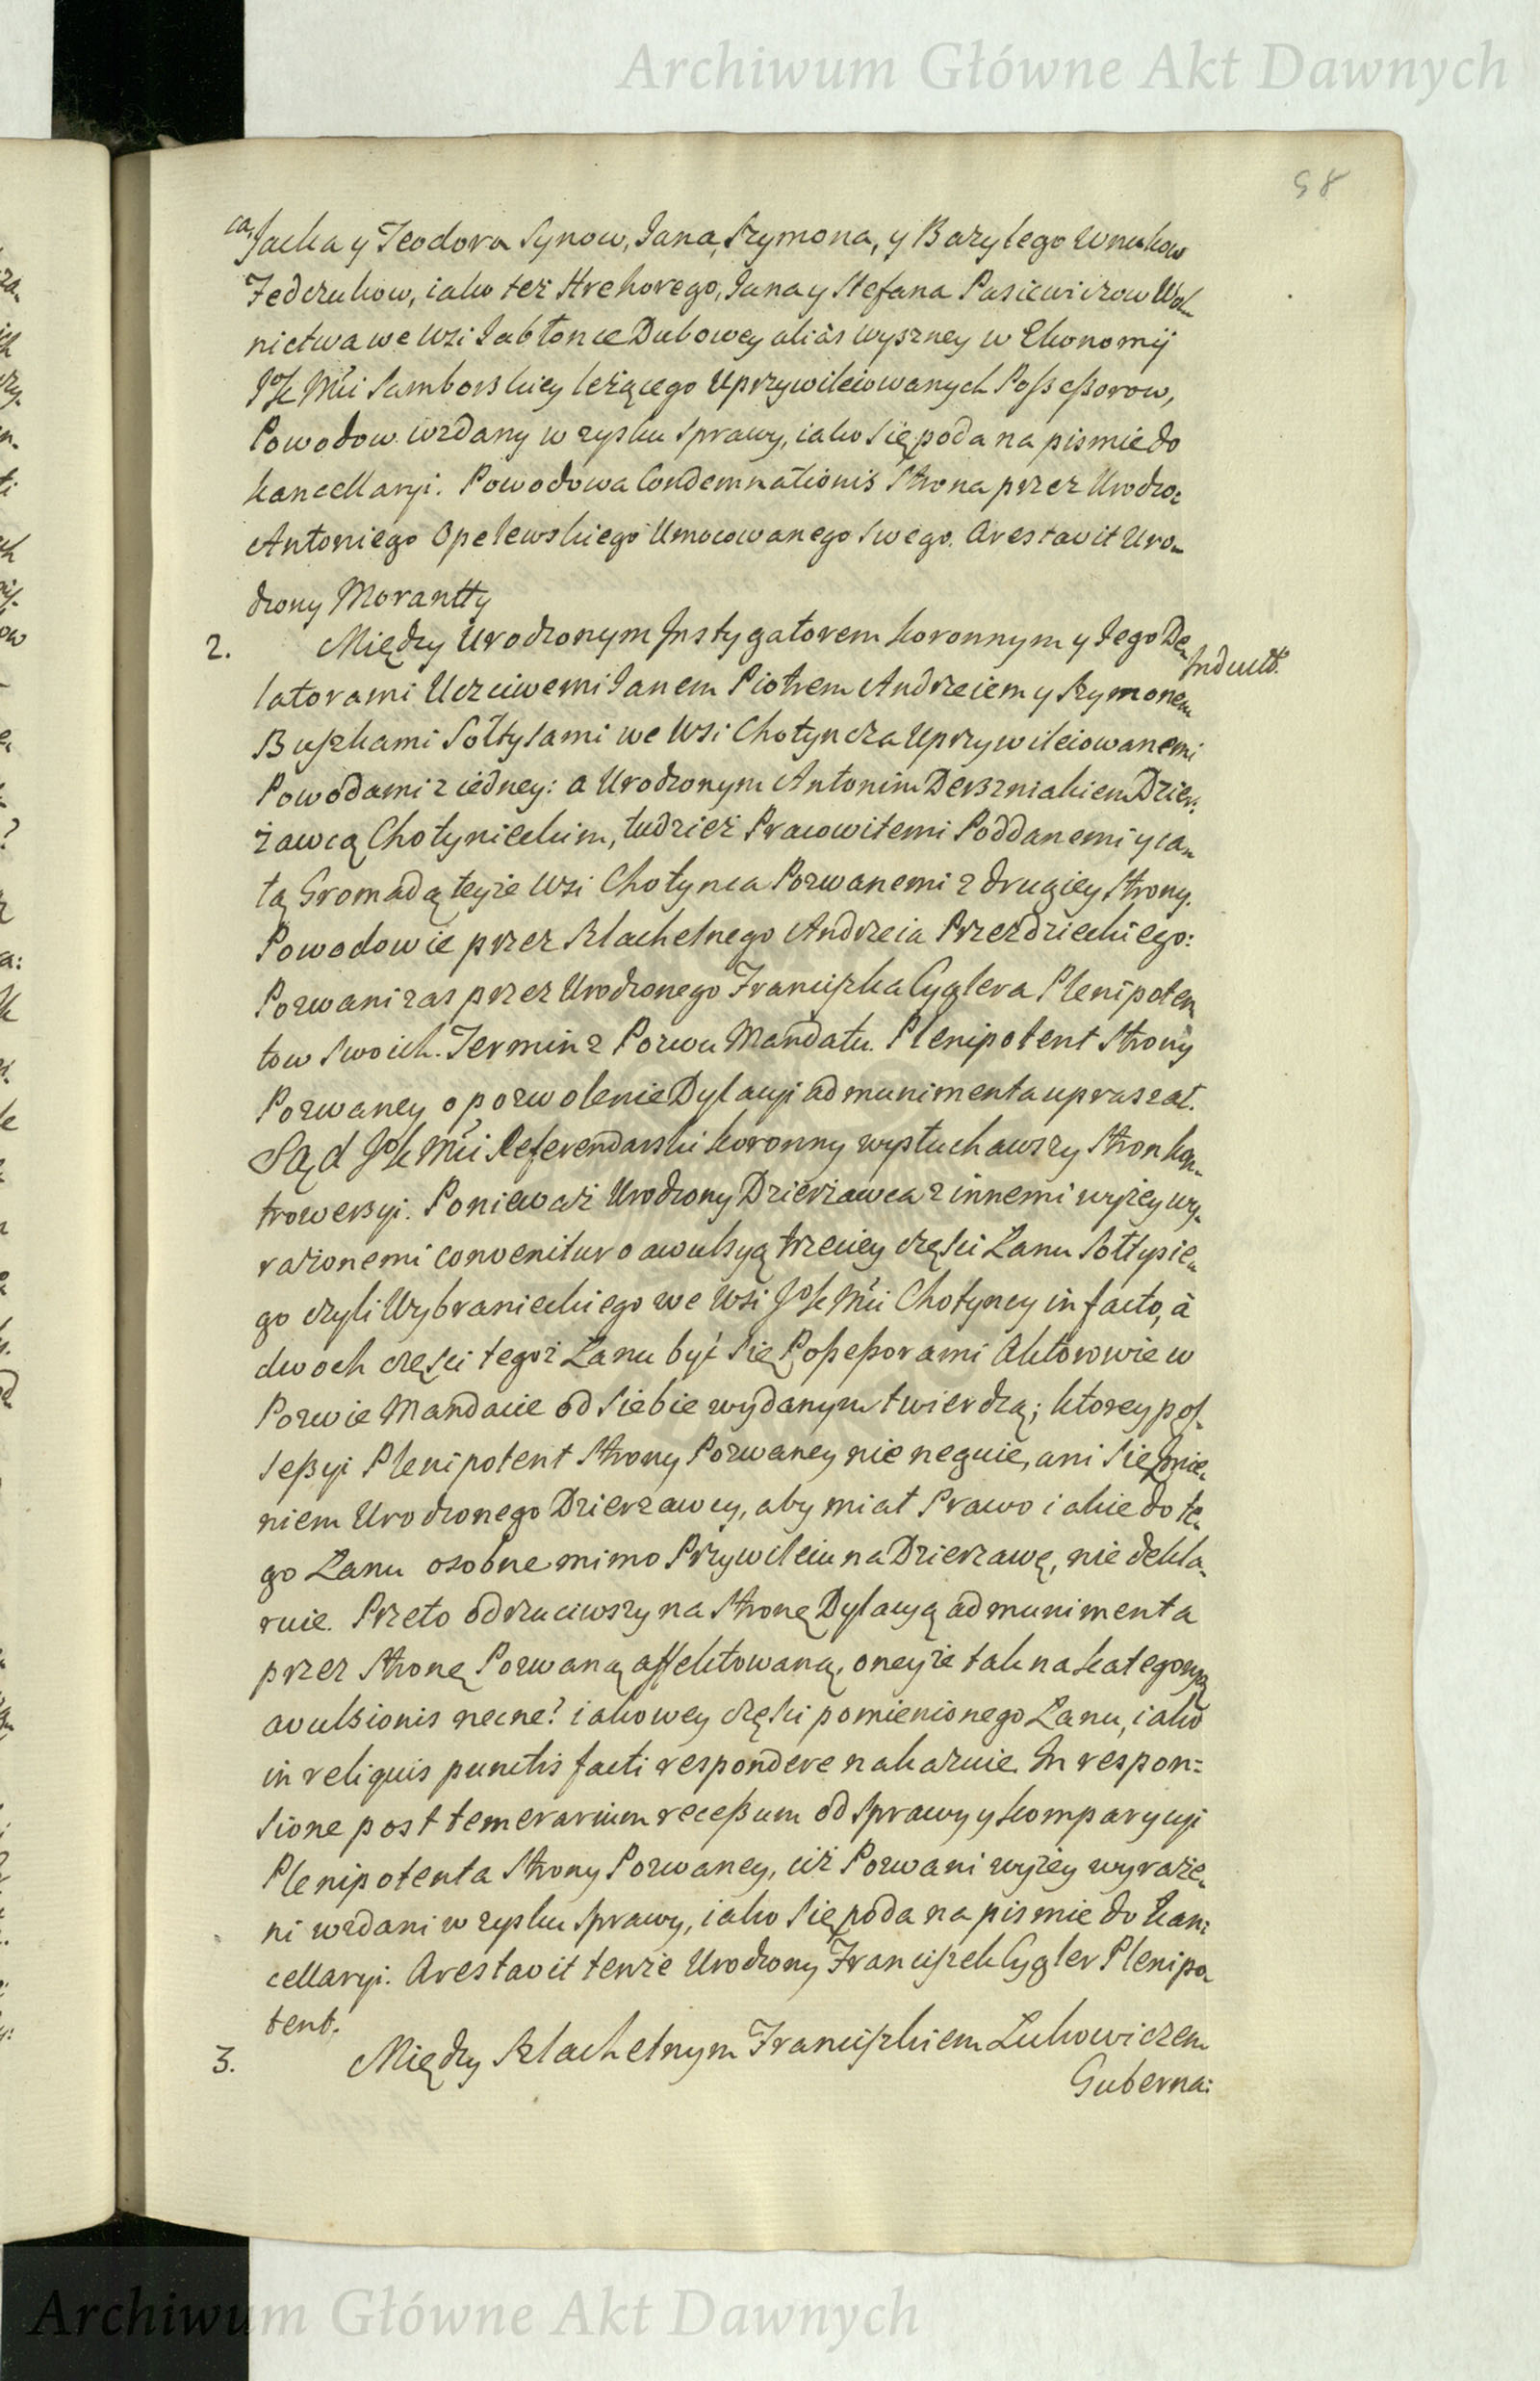 Archiwum Główne Akt Dawnych
58
ca, Jacka y Teodora Synow, Jana, Szymona, y Bazylego Wnukow
Fedczukow, iako też Hrehorego, Jana y Stefana Pasiewiczow Woł„
nictwa we Wsi Jabłonce Dubowey aliàs wyszney w Ekonomij
JoKMci Samborskiey leżącego Uprzywileiowanych Possessorow,
Powodow wzdany w zysku Sprawy, iako się poda na pismie do
kancellaryi. Powodowa Condemnationis Strona przez Urodzo:
Antoniego Opelewskiego Umocowanego Swego. Arestavit Uro„
dzony Morantty
2. Między Urodzonym Instygatorem koronnym y Jego De„
Induct.
latorami Uczciwemi Janem Piotrem Andrzeiem y Szymonem
Buszkami Sołtysami we Wsi Chotyncza Uprzywileiowanemi
Powodami z iedney: a Urodzonym Antonim Derszniakiem Dzier„
żawcą Chotynieckim, tudzież Pracowitemi Poddanemi y ca„
tą Gromadą teyże Wsi Chotynca Pozwanemi z drugiey Strony.
Powodowie przez Szlachetnego Andrzeia Przezdzieckiego:
Pozwani zas przez Urodzonego Franciszka Cyglera Plenipoten
tow Swoich. Termin z Pozwu Mandatu. Plenipotent Strony
Pozwaney o pozwolenie Dylacyi ad munimenta upraszał.
Sąd JoKMci Referendarski koronny wysłuchawszy Stron kon„
trowersyi. Ponieważ Urodzony Dzierżawca z innemi wyżey wy„
rażonemi convenitur o awulsyą trzeciey częsci Łanu Sołtysie„
go czyli Wybranieckiego we Wsi JoKMci Chotyncy in facto, à
dwoch częsci tegoż Łanu być się Possessorami Aktorowie w
Pozwie Mandacie od Siebie wydanym twierdzą; ktorey pos„
sessyi Plenipotent Strony Pozwaney nie neguie, ani się Jmie„
niem Urodzonego Dzierzawcy, aby miał Prawo iakie do te„
go Łanu osobne mimo Przywileiu na Dzierzawę, nie dekla„
ruie. Przeto odrzuciwszy na Stronę Dylacyą ad munimenta
przez Stronę Pozwaną affektowaną, oneyże tak na kategoryą
avulsionis necne? iakowey częsci pomienionego Łanu, iako
in reliquis punctis facti respondere nakazuie. In respon:
sione post temerarium recessum od Sprawy y komparycyi
Plenipotenta Strony Pozwaney, ciż Pozwani wyżey wyraże„
ni wzdani w zysku Sprawy, iako się poda na pismie do kan:
cellaryi. Arestavit tenże Urodzony Franciszek Cygler Plenipo„
tent.
3. Między Szlachetnym Franciszkiem Łukowiczem
Guberna:
Archiwum Główne Akt Dawnych